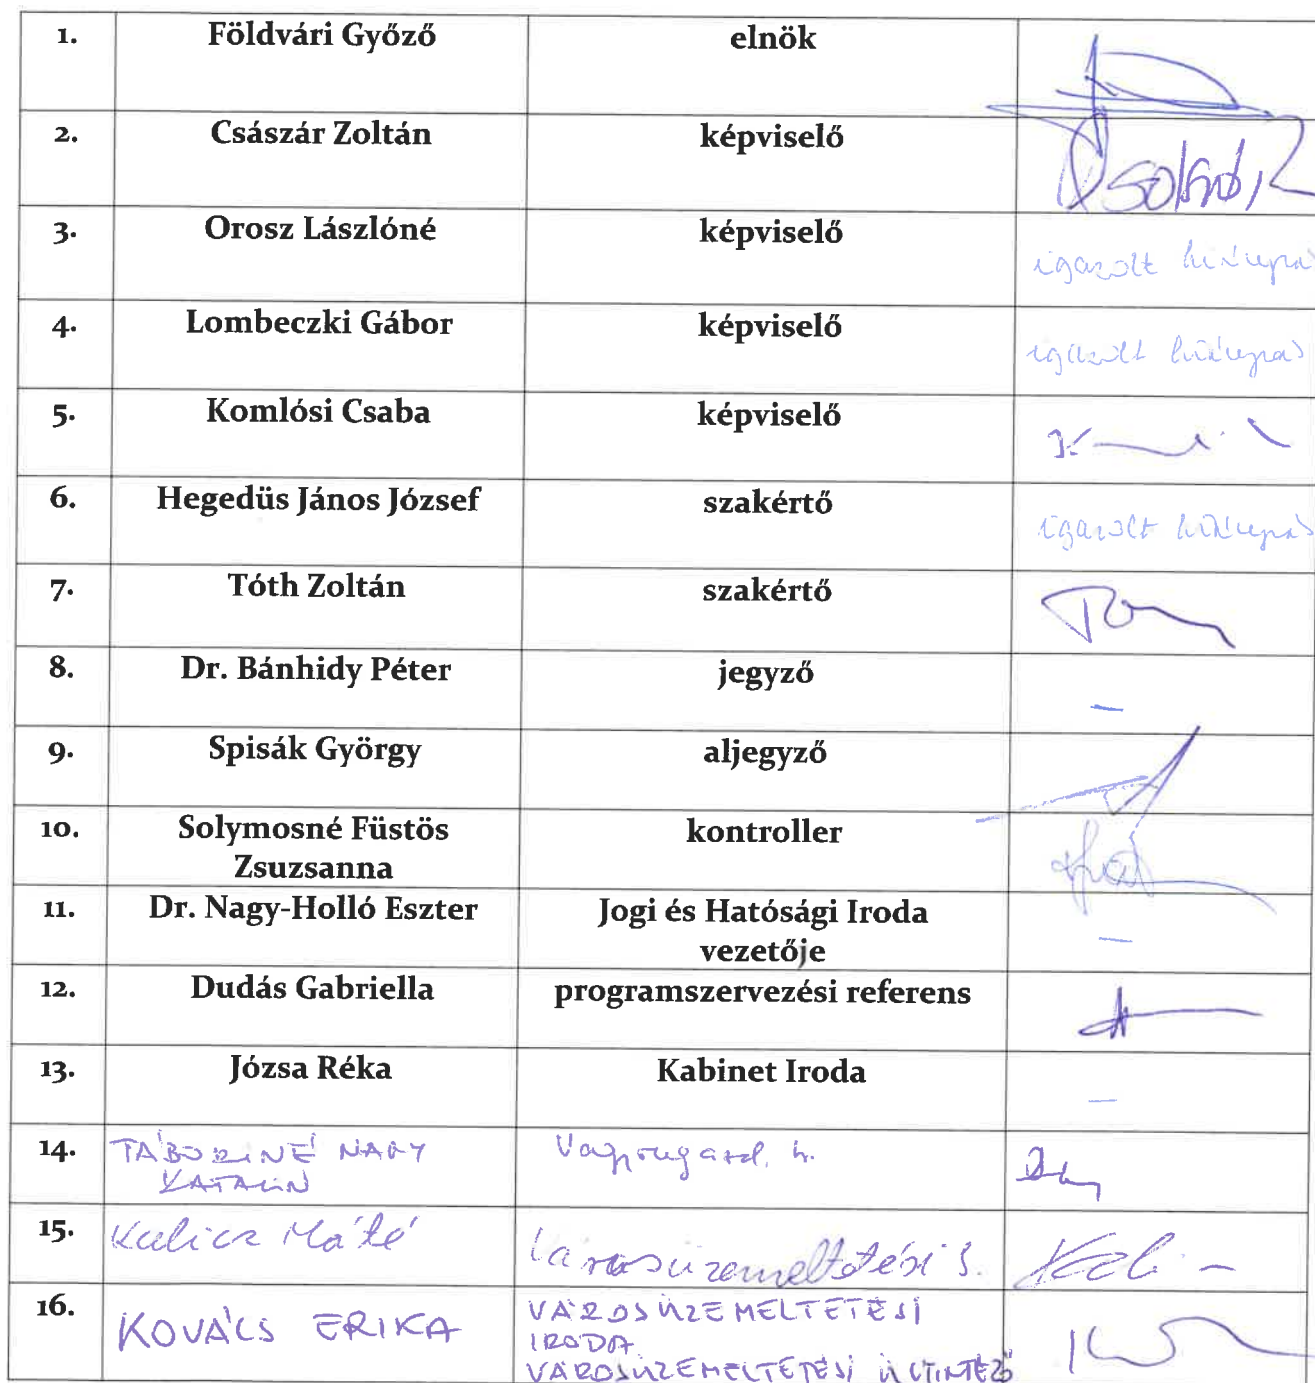 1. Földvári Győző elnök
2. Császár Zoltán képviselő
3. Orosz Lászlóné képviselő igazolt hiányzás
4. Lombeczki Gábor képviselő igazolt hiányzás
5. Komlósi Csaba képviselő
6. Hegedüs János József szakértő igazolt hiányzás
7. Tóth Zoltán szakértő
8. Dr. Bánhidy Péter jegyző –
9. Spisák György aljegyző
10. Solymosné Füstös kontroller
Zsuzsanna
11. Dr. Nagy-Holló Eszter Jogi és Hatósági Iroda –
vezetője
12. Dudás Gabriella programszervezési referens
13. Józsa Réka Kabinet Iroda –
14. TÁBORINÉ NAGY Vagyongazd.
KATALIN
15. Kulicz Máté Városüzemeltetési
16. KOVÁCS ERIKA VÁROSÜZEMELTETÉSI
IRODA
VÁROSÜZEMELTETÉSI ÜGYINTÉZŐ